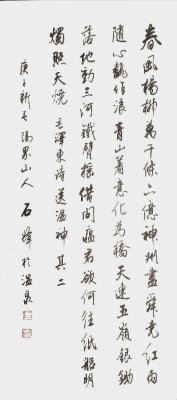 春風楊柳萬千條六億神州盡舜堯紅雨
隨心翻作浪青山着意化為橋天連五嶺銀鋤
落地動三河鐵臂搖借問瘟君欲何往紙船明
燭照天燒 毛澤東詩送瘟神其二
庚子新春山人 石峰於溫泉